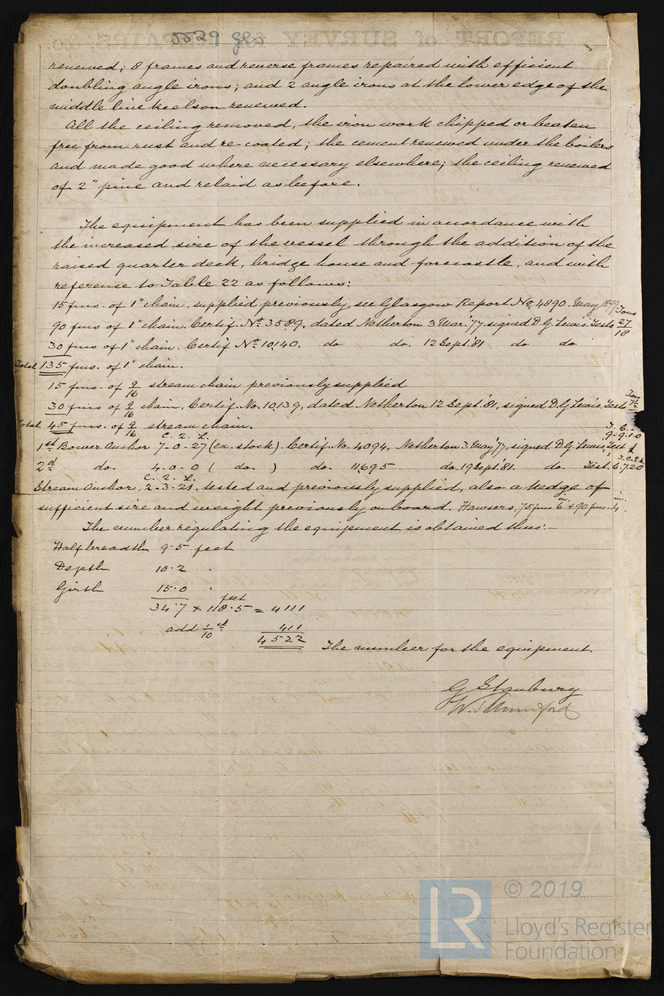 5529 gls
REPORT of SURVEY REPAIRS, &c.
renewed; 8 frames and reverse frames repaired with efficient
doubling angle irons; and 2 angle irons at the lower edge of the
middle line keelson renewed.
All the ceiling removed, the iron work chipped or beaten
free from rust and re-coated; the cement renewed under the boilers
and made good where necessary elsewhere; the ceiling renewed
of 2" pine and relaid as before.
The equipment has been supplied in accordance with
the increased size of the vessel through the addition of the
raised quarter deck, bridge house and forecastle, and with
reference to Table 22 as follows:
15 fms. of 1" chain, supplied previously, see Glasgow Report No. 4890. May 1879
Tons
90 fms of 1" chain. Certif. No. 3589, dated Netherton 3 Mar. '77, signed D. G. Lewis. Tests 27/18
30 fms of 1" chain. Certif No. 10140. do do. 12 Sept '81 do do
Total 135 fms. of 1" chain.
15 fms. of 9/16 stream chain previously supplied
30 fms. of 9/16 chain, Certif. No. 10139, dated Netherton 12 Sept. '81, signed D. G. Lewis, Test Tons 7
Total 45 fms. of 9/16 stream chain.
C. 2. L. T. C.
1st Bower Anchor 7.0.27 (ex. stock). Certif. No. 4094, Netherton 3 May '77, signed D. G. Lewis Test 9.9.1.0
2d do. 4.0.0 ( do ) do. 11695 do. 19 Sept '81. do. Test. 6.7.2.0
C. 2. L.
Stream Anchor, 2.3.21, tested and previously supplied, also a kedge of
sufficient size and weight previously on board. Hawsers, 75 fms 6 in. + 90 fms. 4 in.
The number regulating the equipment is obtained thus:-
Half breadth 9.5 feet
Depth 10.2 .
Girth 15.0 .
34.7 x 118.5 feet = 4111
add 1/10th 411
4522 The number for the equipment
G Stanbury
W. J. Mumford
LR
© 2019
Lloyd's Register
Foundation